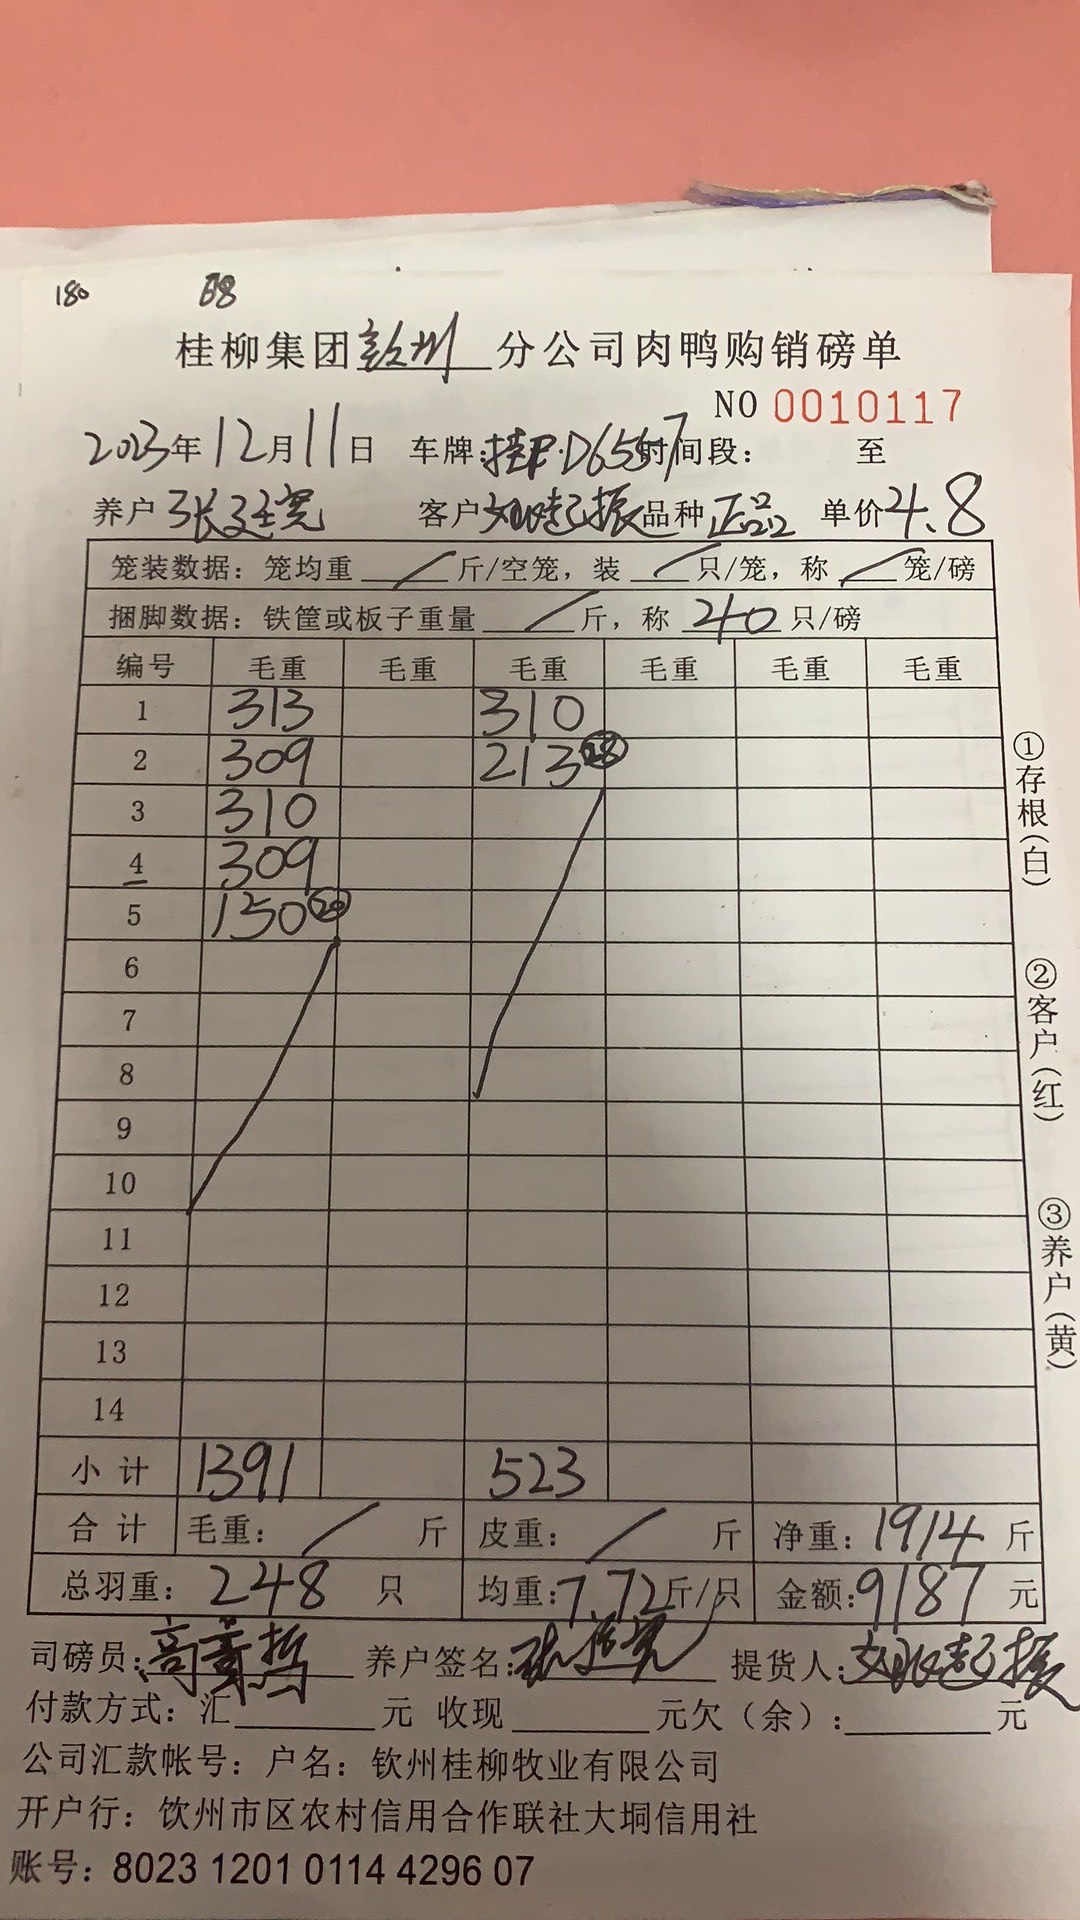 180 68
桂柳集团钦州分公司肉鸭购销磅单
NO 0010117
2023年12月11日 车牌:桂P·D6557 时间段: 至
养户 张廷宽 客户 起振 品种 正品 单价 4.8
笼装数据: 笼均重 / 斤/空笼, 装 / 只/笼, 称 / 笼/磅
捆脚数据: 铁筐或板子重量 / 斤, 称 40 只/磅
编号 毛重 毛重 毛重 毛重 毛重 毛重
1 313 310
2 309 213 28
3 310
4 309
5 150 20
6
7
8
9
10
11
12
13
14
小计 1391 523
合计 毛重: / 斤 皮重: / 斤 净重: 1914 斤
总羽重: 248 只 均重: 7.72 斤/只 金额: 9187 元
司磅员: 高 哲 养户签名: 张廷宽 提货人: 起振
付款方式: 汇 元 收现 元欠(余): 元
公司汇款帐号: 户名: 钦州桂柳牧业有限公司
开户行: 钦州市区农村信用合作联社大垌信用社
账号: 8023 1201 0114 4296 07
①存根(白)
②客户(红)
③养户(黄)